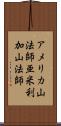 アメリカ山
法師亜米利
加山法師